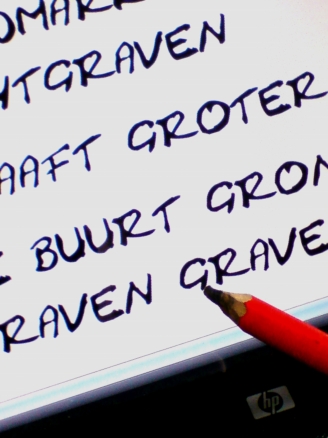 OMARK
YTGRAVEN
AAFT GROTER
E BUURT GRON
RAVEN GRAVE
hp